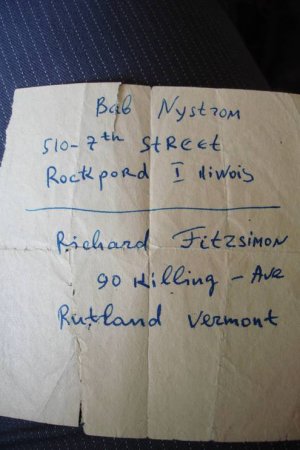 Bab Nystrom
510-7th Street
Rockpord Illinois
Richard Fitzsimon
90 Killing - Ave
Rutland Vermont